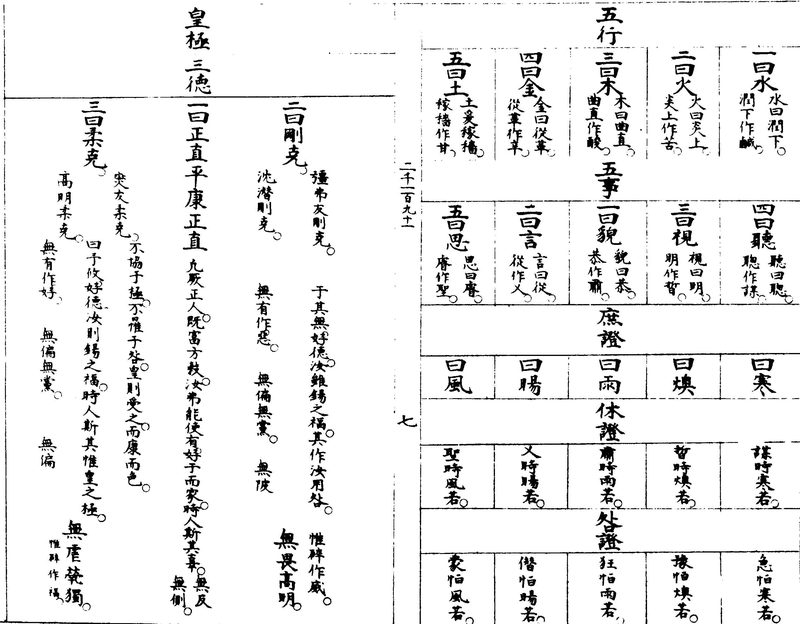 五行
一曰水
水曰潤下
潤下作鹹
二曰火
火曰炎上
炎上作苦
三曰木
木曰曲直
曲直作酸
四曰金
金曰從革
從革作辛
五曰土
土爰稼穡
稼穡作甘
五事
四曰聽
聽曰聰
聰作謀
三曰視
視曰明
明作晢
一曰貌
貌曰恭
恭作肅
二曰言
言曰從
從作乂
五曰思
思曰睿
睿作聖
庶證
曰寒
曰燠
曰雨
曰暘
曰風
休證
謀時寒若
晢時燠若
肅時雨若
乂時暘若
聖時風若
咎證
急怕寒若
豫怕燠若
狂怕雨若
僭怕暘若
蒙怕風若
二千一百九十一
七
皇極
三德
二曰剛克
彊弗友剛克
沈潛剛克
于其無好德汝雖錫之福其作汝用咎
惟辟作威
無有作惡
無偏無黨
無陂
無畏高明
一曰正直平康正直
凡厥正人既富方穀汝弗能使有好于而家時人斯其辜
無反
無側
三曰柔克
燮友柔克
高明柔克
不協于極不罹于咎皇則受之而康而色
曰予攸好德汝則錫之福時人斯其惟皇之極
無有作好
無偏無黨
無偏
無虐煢獨
惟辟作福